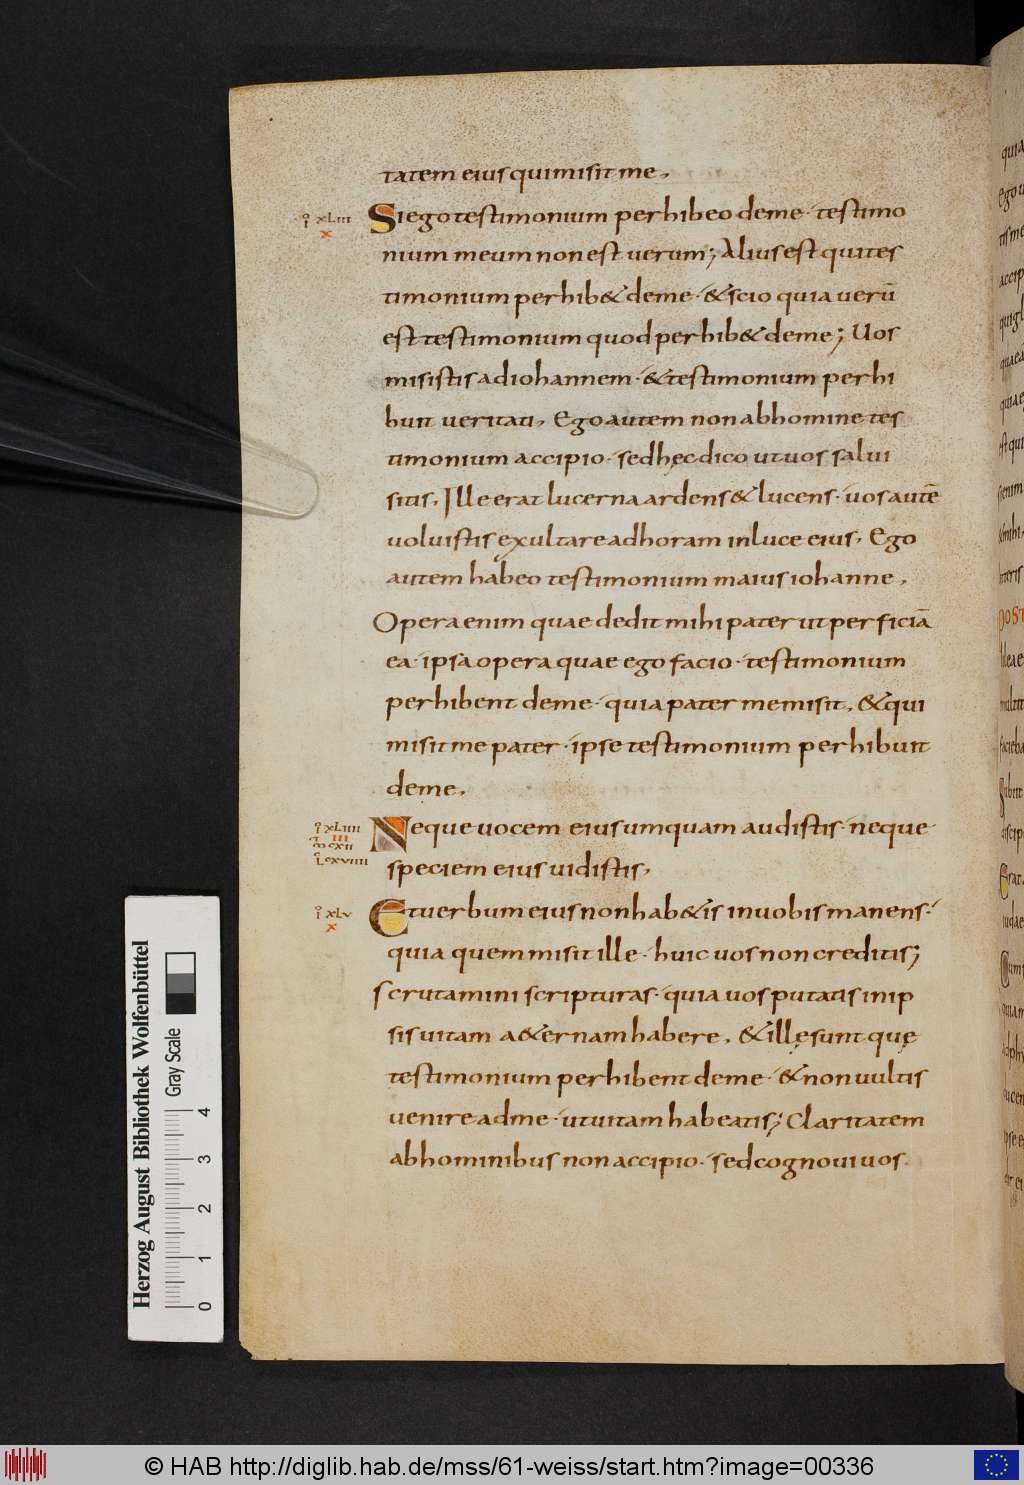 tatem eius qui misit me,
Si ego testimonium perhibeo de me· testimo
nium meum non est uerum; Alius est qui tes
timonium perhib& de me· & scio quia uerū
est testimonium quod perhib& de me; Uos
misistis ad iohannem· & testimonium perhi
buit ueritati, Ego autem non ab homine tes
timonium accipio· sed hęc dico ut uos salui
sitis, Ille erat lucerna ardens & lucens· uos autē
uoluistis exultare ad horam in luce eius, Ego
autem habeo testimonium maius iohanne,
Opera enim quae dedit mihi pater ut perficiā
ea· ipsa opera quae ego facio· testimonium
perhibent de me· quia pater me misit, & qui
misit me pater· ipse testimonium perhibuit
de me,
Neque uocem eius umquam audistis· neque
speciem eius uidistis,
Et uerbum eius non hab&is in uobis manens·
quia quem misit ille· huic uos non creditis;
Scrutamini scripturas· quia uos putatis in ip
sis uitam a&ernam habere, & illę sunt quę
testimonium perhibent de me· & non uultis
uenire ad me· ut uitam habeatis; Claritatem
ab hominibus non accipio· sed cognoui uos·
xLIII
x
xLIIII
III
cxII
cxvIIII
xLv
x
Herzog August Bibliothek Wolfenbüttel
Gray Scale
0 1 2 3 4
© HAB http://diglib.hab.de/mss/61-weiss/start.htm?image=00336